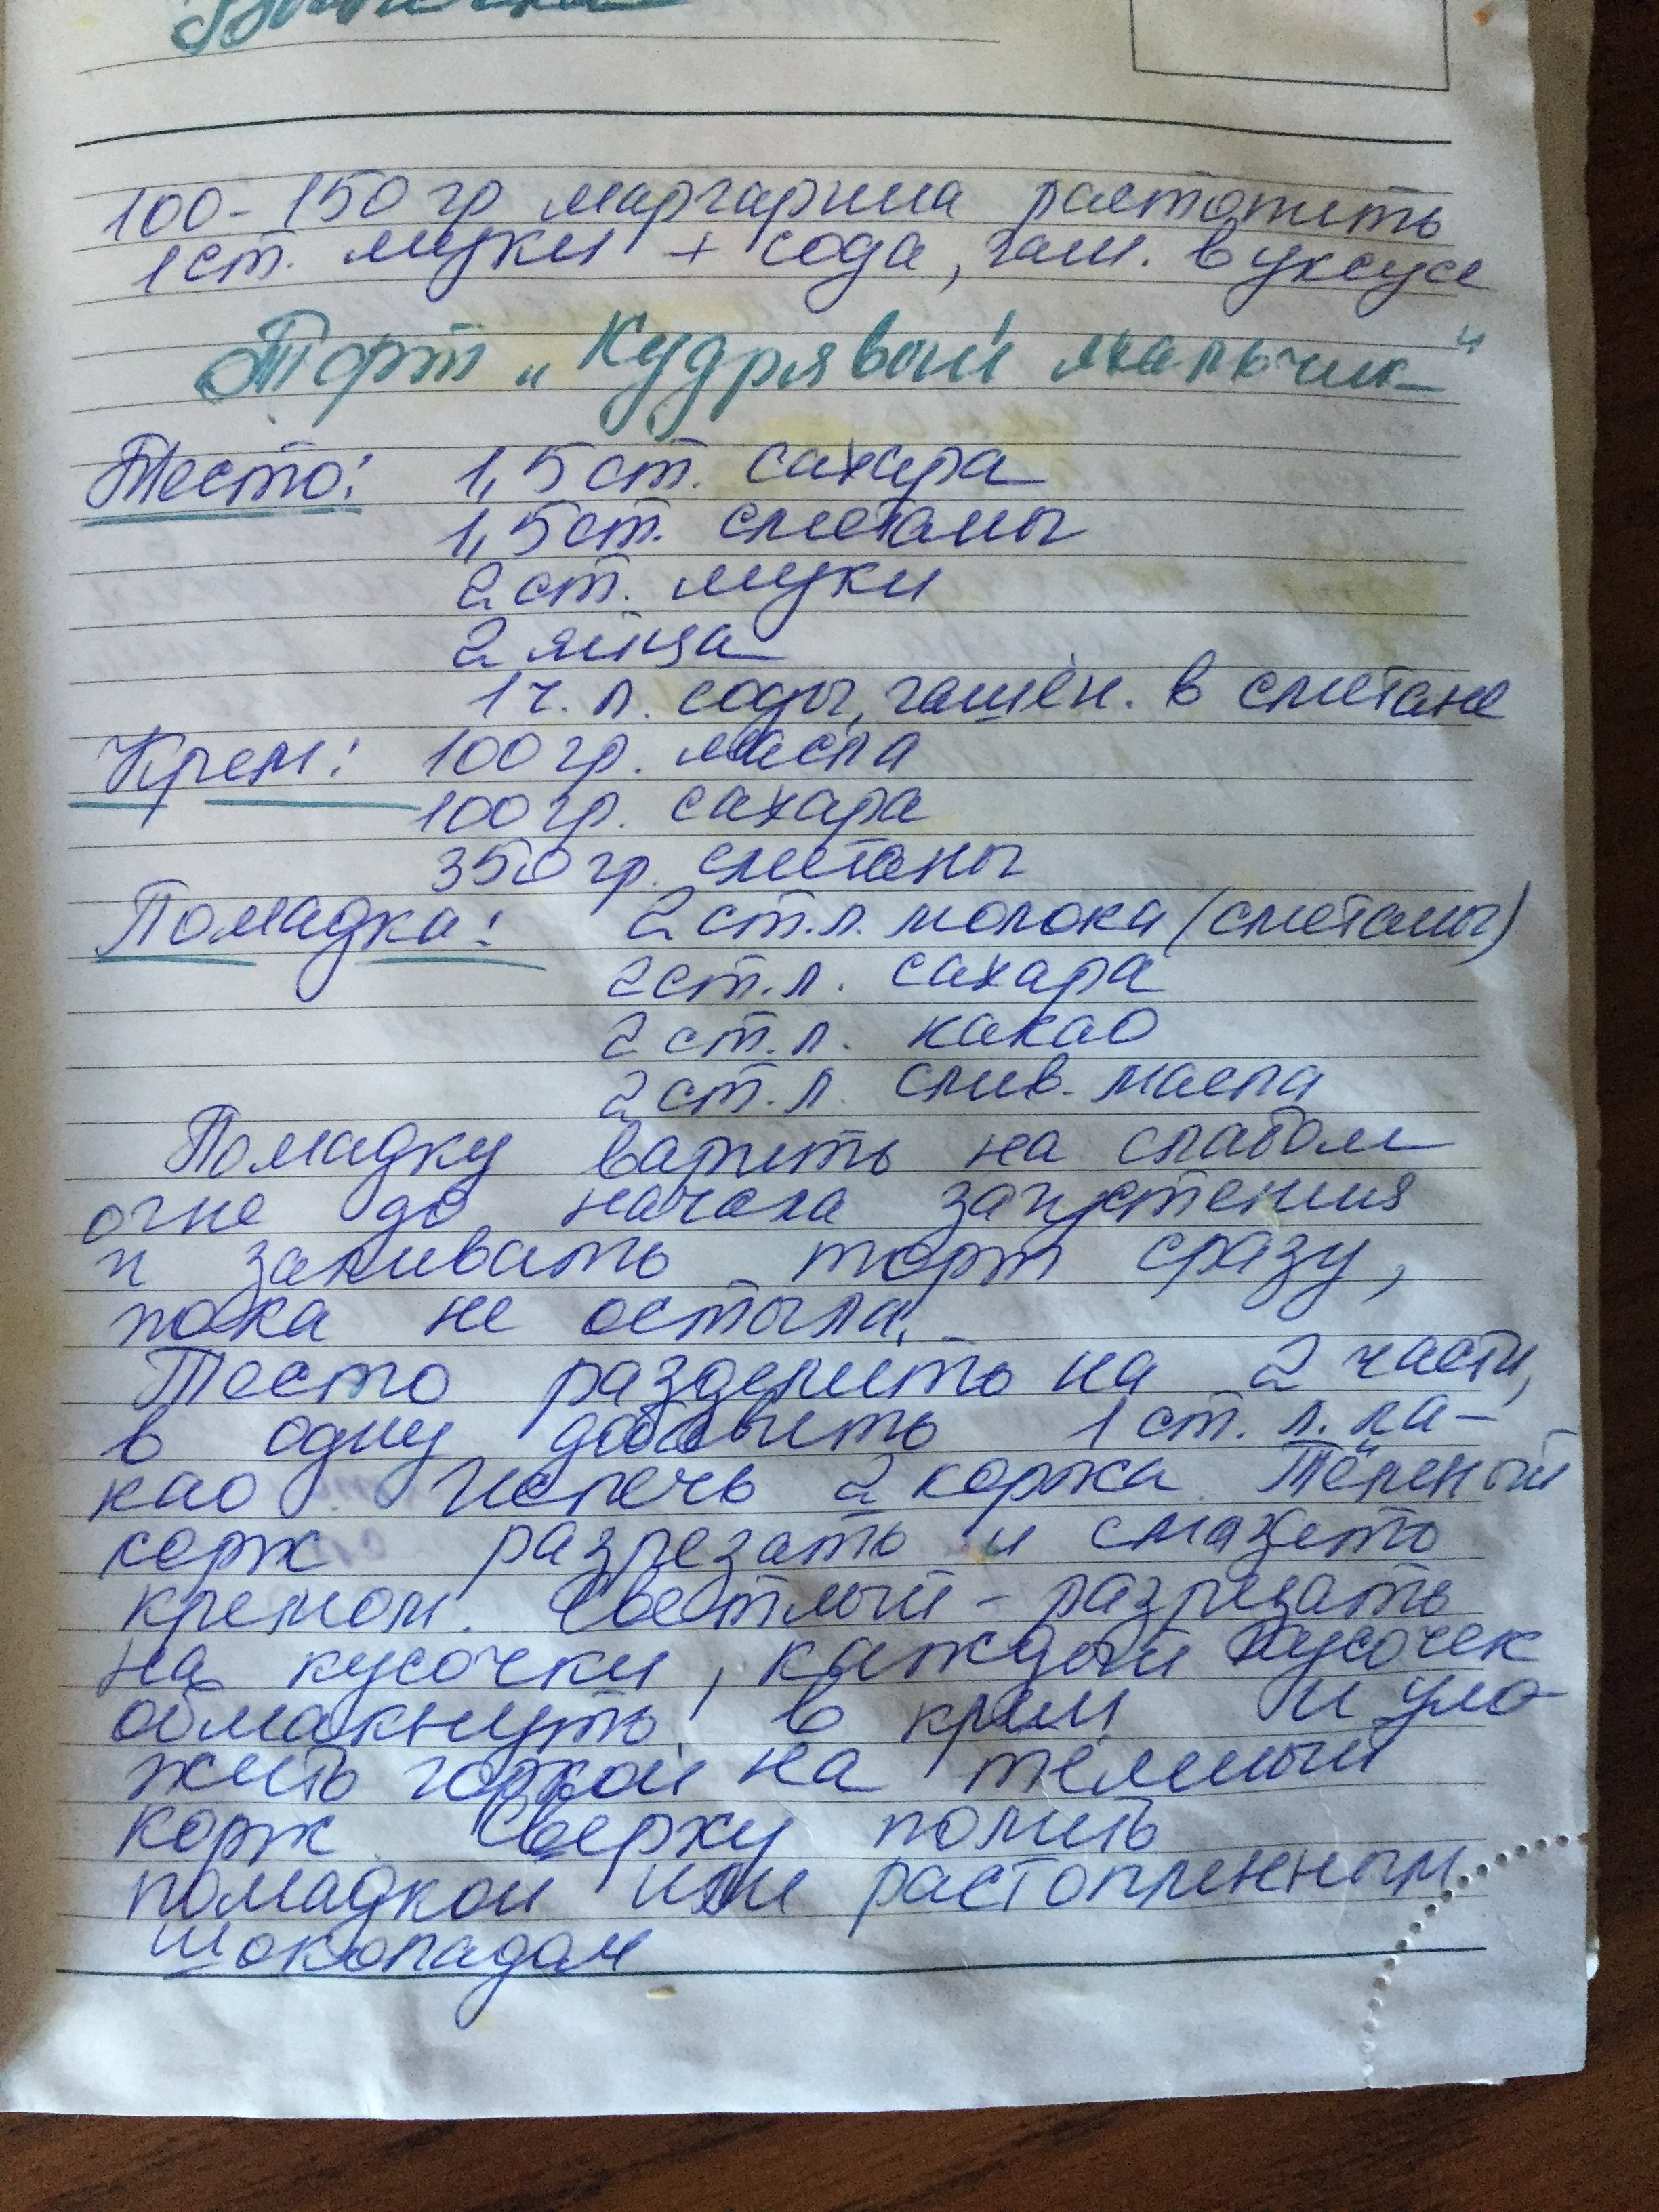 100-150 гр маргарина растопить
1 ст. муки + сода, гаш. в уксусе
Торт „Кудрявый мальчик"
Тесто: 1,5 ст. сахара
1,5 ст. сметаны
2 ст. муки
2 яйца
1 ч. л. соды, гашён. в сметане
Крем: 100 гр. масла
100 гр. сахара
350 гр. сметаны
Помадка: 2 ст. л. молока (сметаны)
2 ст. л. сахара
2 ст. л. какао
2 ст. л. слив. масла
Помадку варить на слабом
огне до начала загустения
и заливать торт сразу,
пока не остыла.
Тесто разделить на 2 части,
в одну добавить 1 ст. л. ка-
као. Испечь 2 коржа.
корж разрезать и смазать
кремом. Светлый - разрезать
на кусочки, каждый кусочек
обмакнуть в крем и уло-
жить горкой на тёмный
корж. Сверху полить
помадкой или растопленным
шоколадом